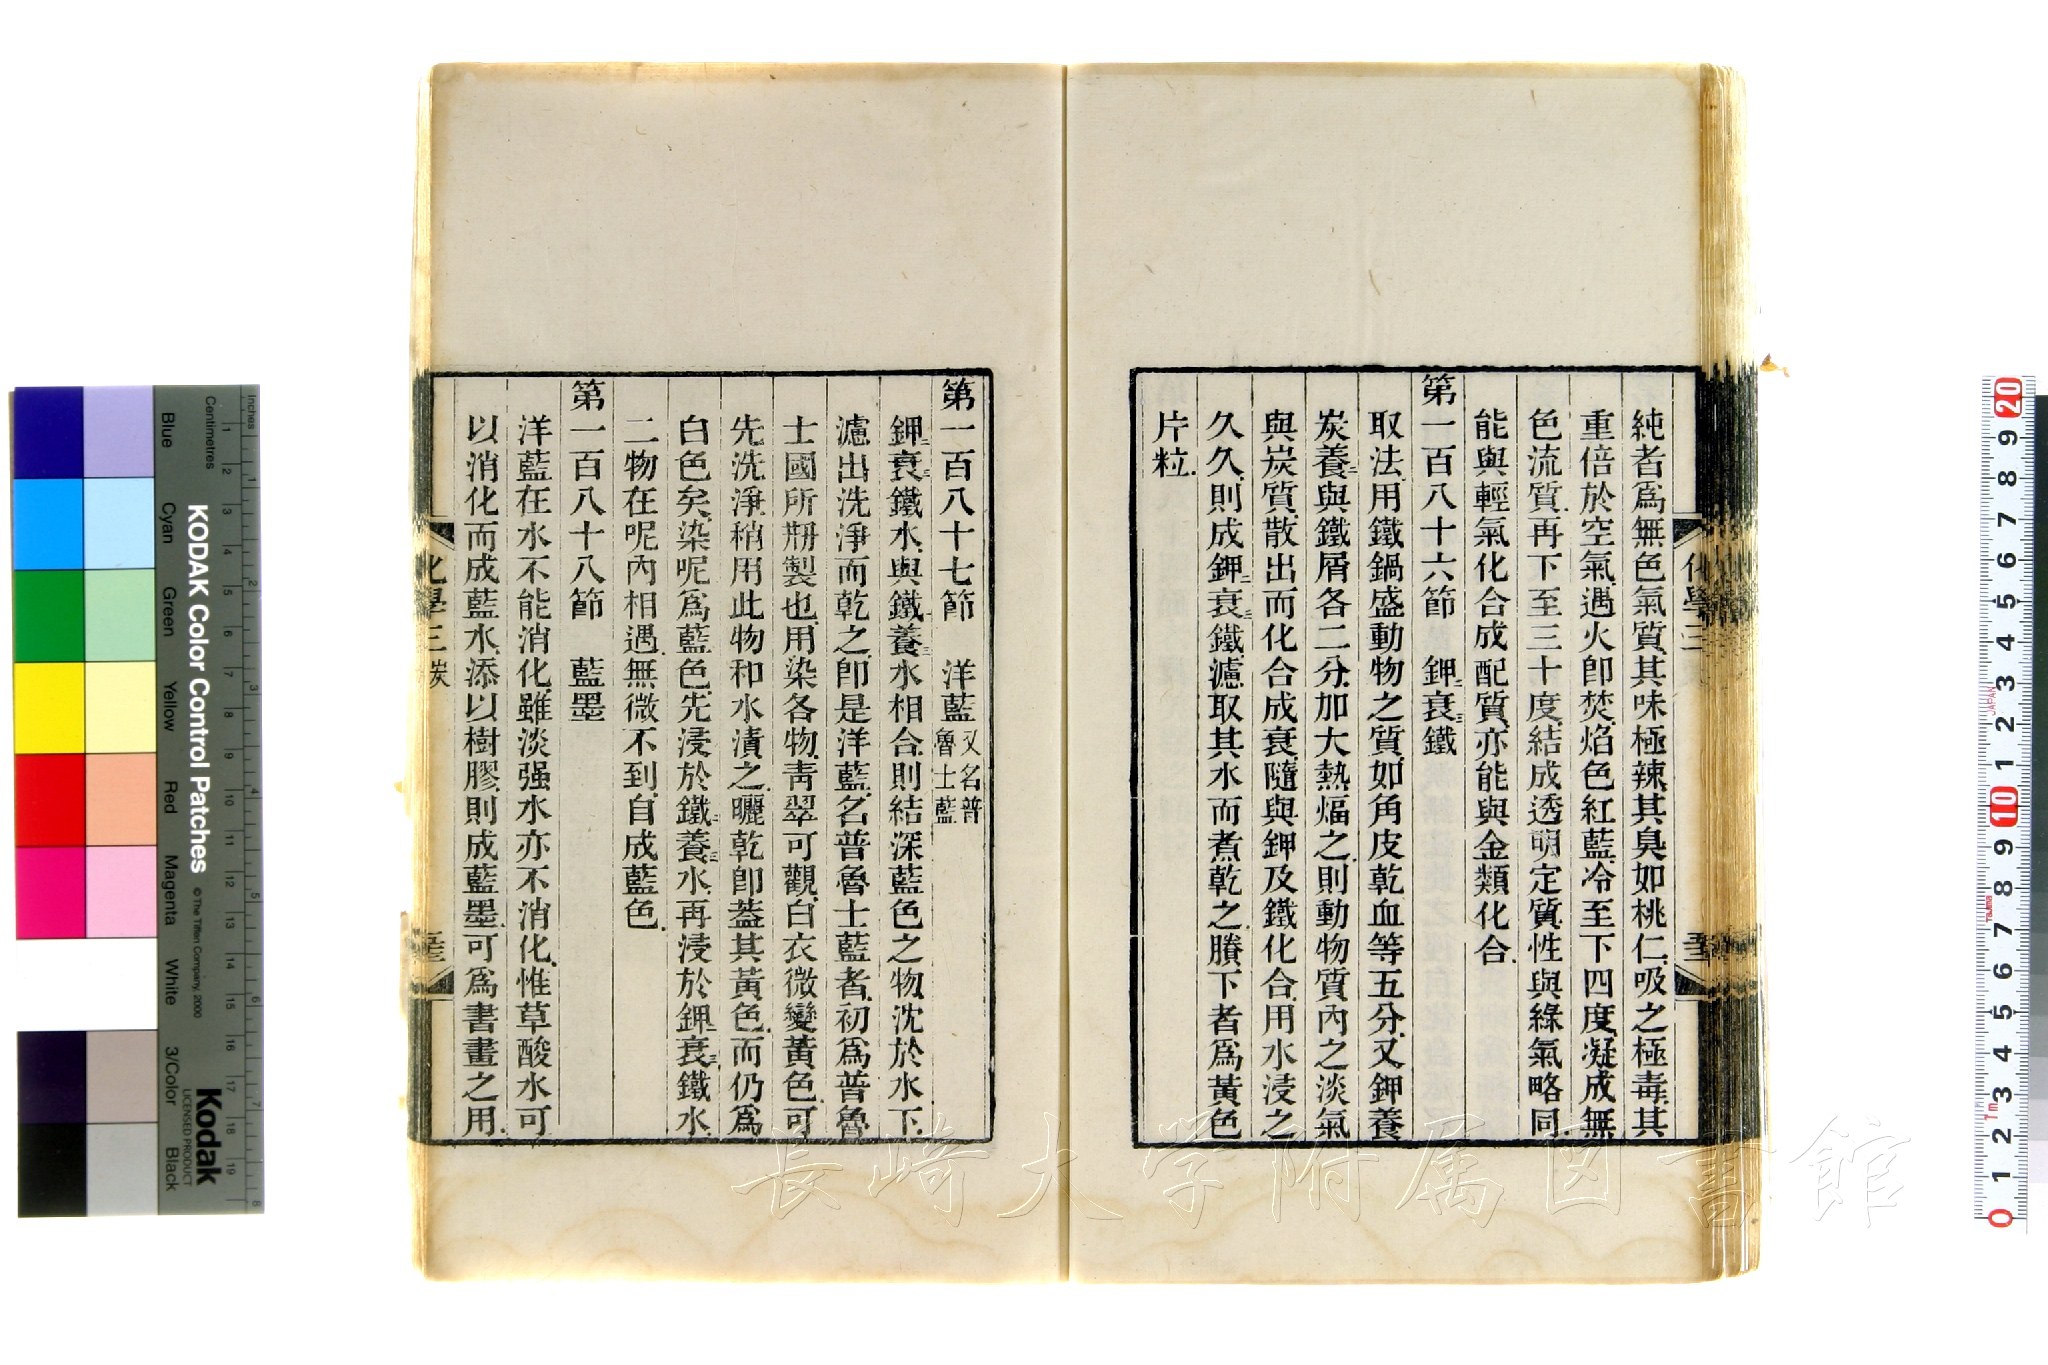 純者爲無色氣質其味極辣其臭如桃仁吸之極毒其
重倍於空氣遇火卽焚焰色紅藍冷至下四度凝成無
色流質再下至三十度結成透明定質性與綠氣略同
能與輕氣化合成配質亦能與金類化合
第一百八十六節　鉀二衰三鐵
取法用鐵鍋盛動物之質如角皮乾血等五分又鉀養
炭養二與鐵屑各二分加大熱煏之則動物質內之淡氣
與炭質散出而化合成衰隨與鉀及鐵化合用水浸之
久久則成鉀二衰三鐵濾取其水而煮乾之賸下者爲黃色
片粒
化學三
第一百八十七節　洋藍 又名普
魯士藍
鉀二衰三鐵水與鐵二養三水相合則結深藍色之物沈於水下
濾出洗淨而乾之卽是洋藍名普魯士藍者初爲普魯
士國所刱製也用染各物靑翠可觀白衣微變黃色可
先洗淨稍用此物和水漬之曬乾卽蓋其黃色而仍爲
白色矣染呢爲藍色先浸於鐵二養三水再浸於鉀二衰三鐵水
二物在呢內相遇無微不到自成藍色
第一百八十八節　藍墨
洋藍在水不能消化雖淡强水亦不消化惟草酸水可
以消化而成藍水添以樹膠則成藍墨可爲書畫之用
化學三 炭
長崎大学附属図書館
KODAK Color Control Patches
© The Tiffen Company, 2000
Kodak
LICENSED PRODUCT
Inches
Centimetres
Blue
Cyan
Green
Yellow
Red
Magenta
White
3/Color
Black
JAPAN